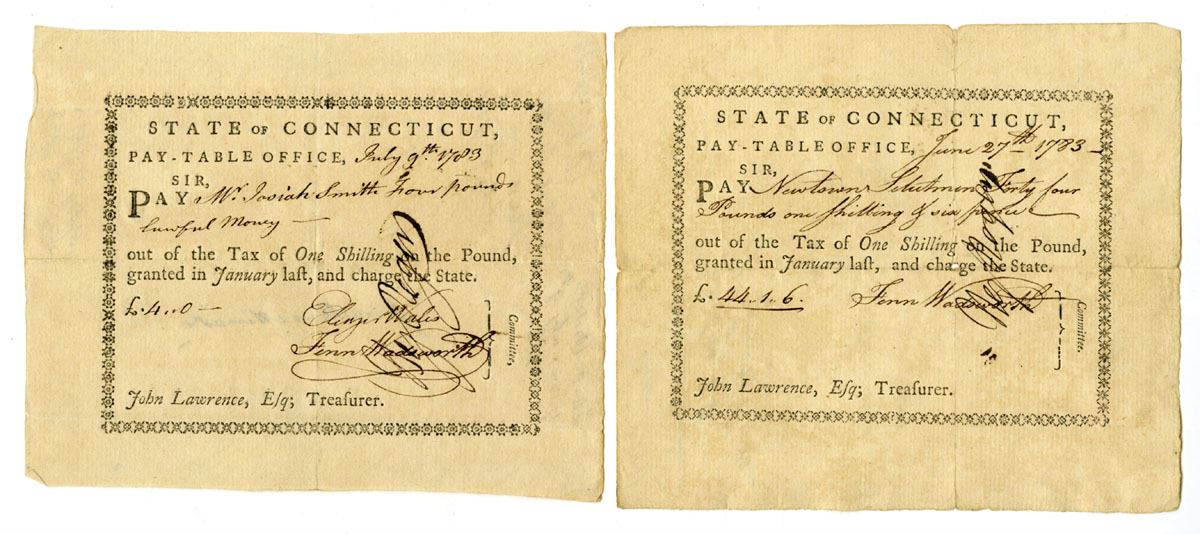 STATE OF CONNECTICUT,
PAY-TABLE OFFICE, July 9th 1783
SIR,
PAY Mr Josiah Smith Four pounds
lawful Money
out of the Tax of One Shilling on the Pound,
granted in January laſt, and charge the State.
£.4..0
Eleazr Wales
Fenn Wadsworth
Committee,
John Lawrence, Eſq; Treaſurer.
STATE OF CONNECTICUT,
PAY-TABLE OFFICE, June 27th 1783
SIR,
PAY Newtown Selectmen Forty four
Pounds one shilling & six pence
out of the Tax of One Shilling on the Pound,
granted in January laſt, and charge the State.
£.44..1..6.
Fenn Wadsworth
Committee.
John Lawrence, Eſq; Treaſurer.